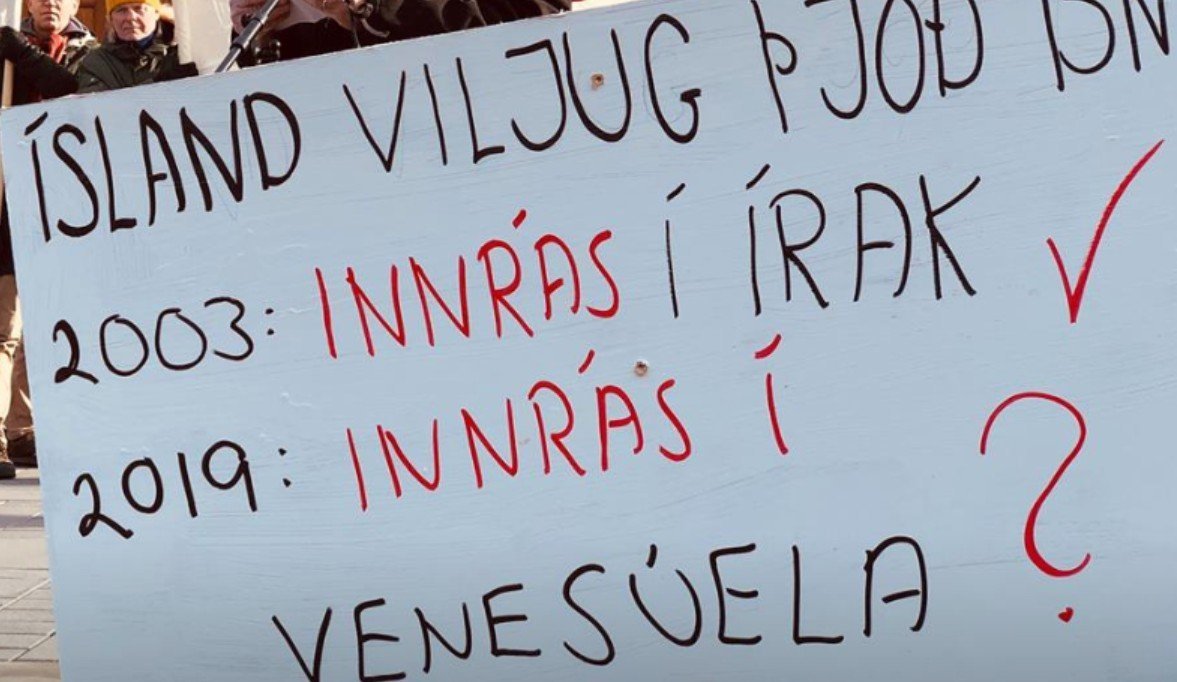 ÍSLAND VILJUG ÞJOÐ
2003: INNRÁS Í ÍRAK ✓
2019: INNRÁS Í
VENESÚELA ?